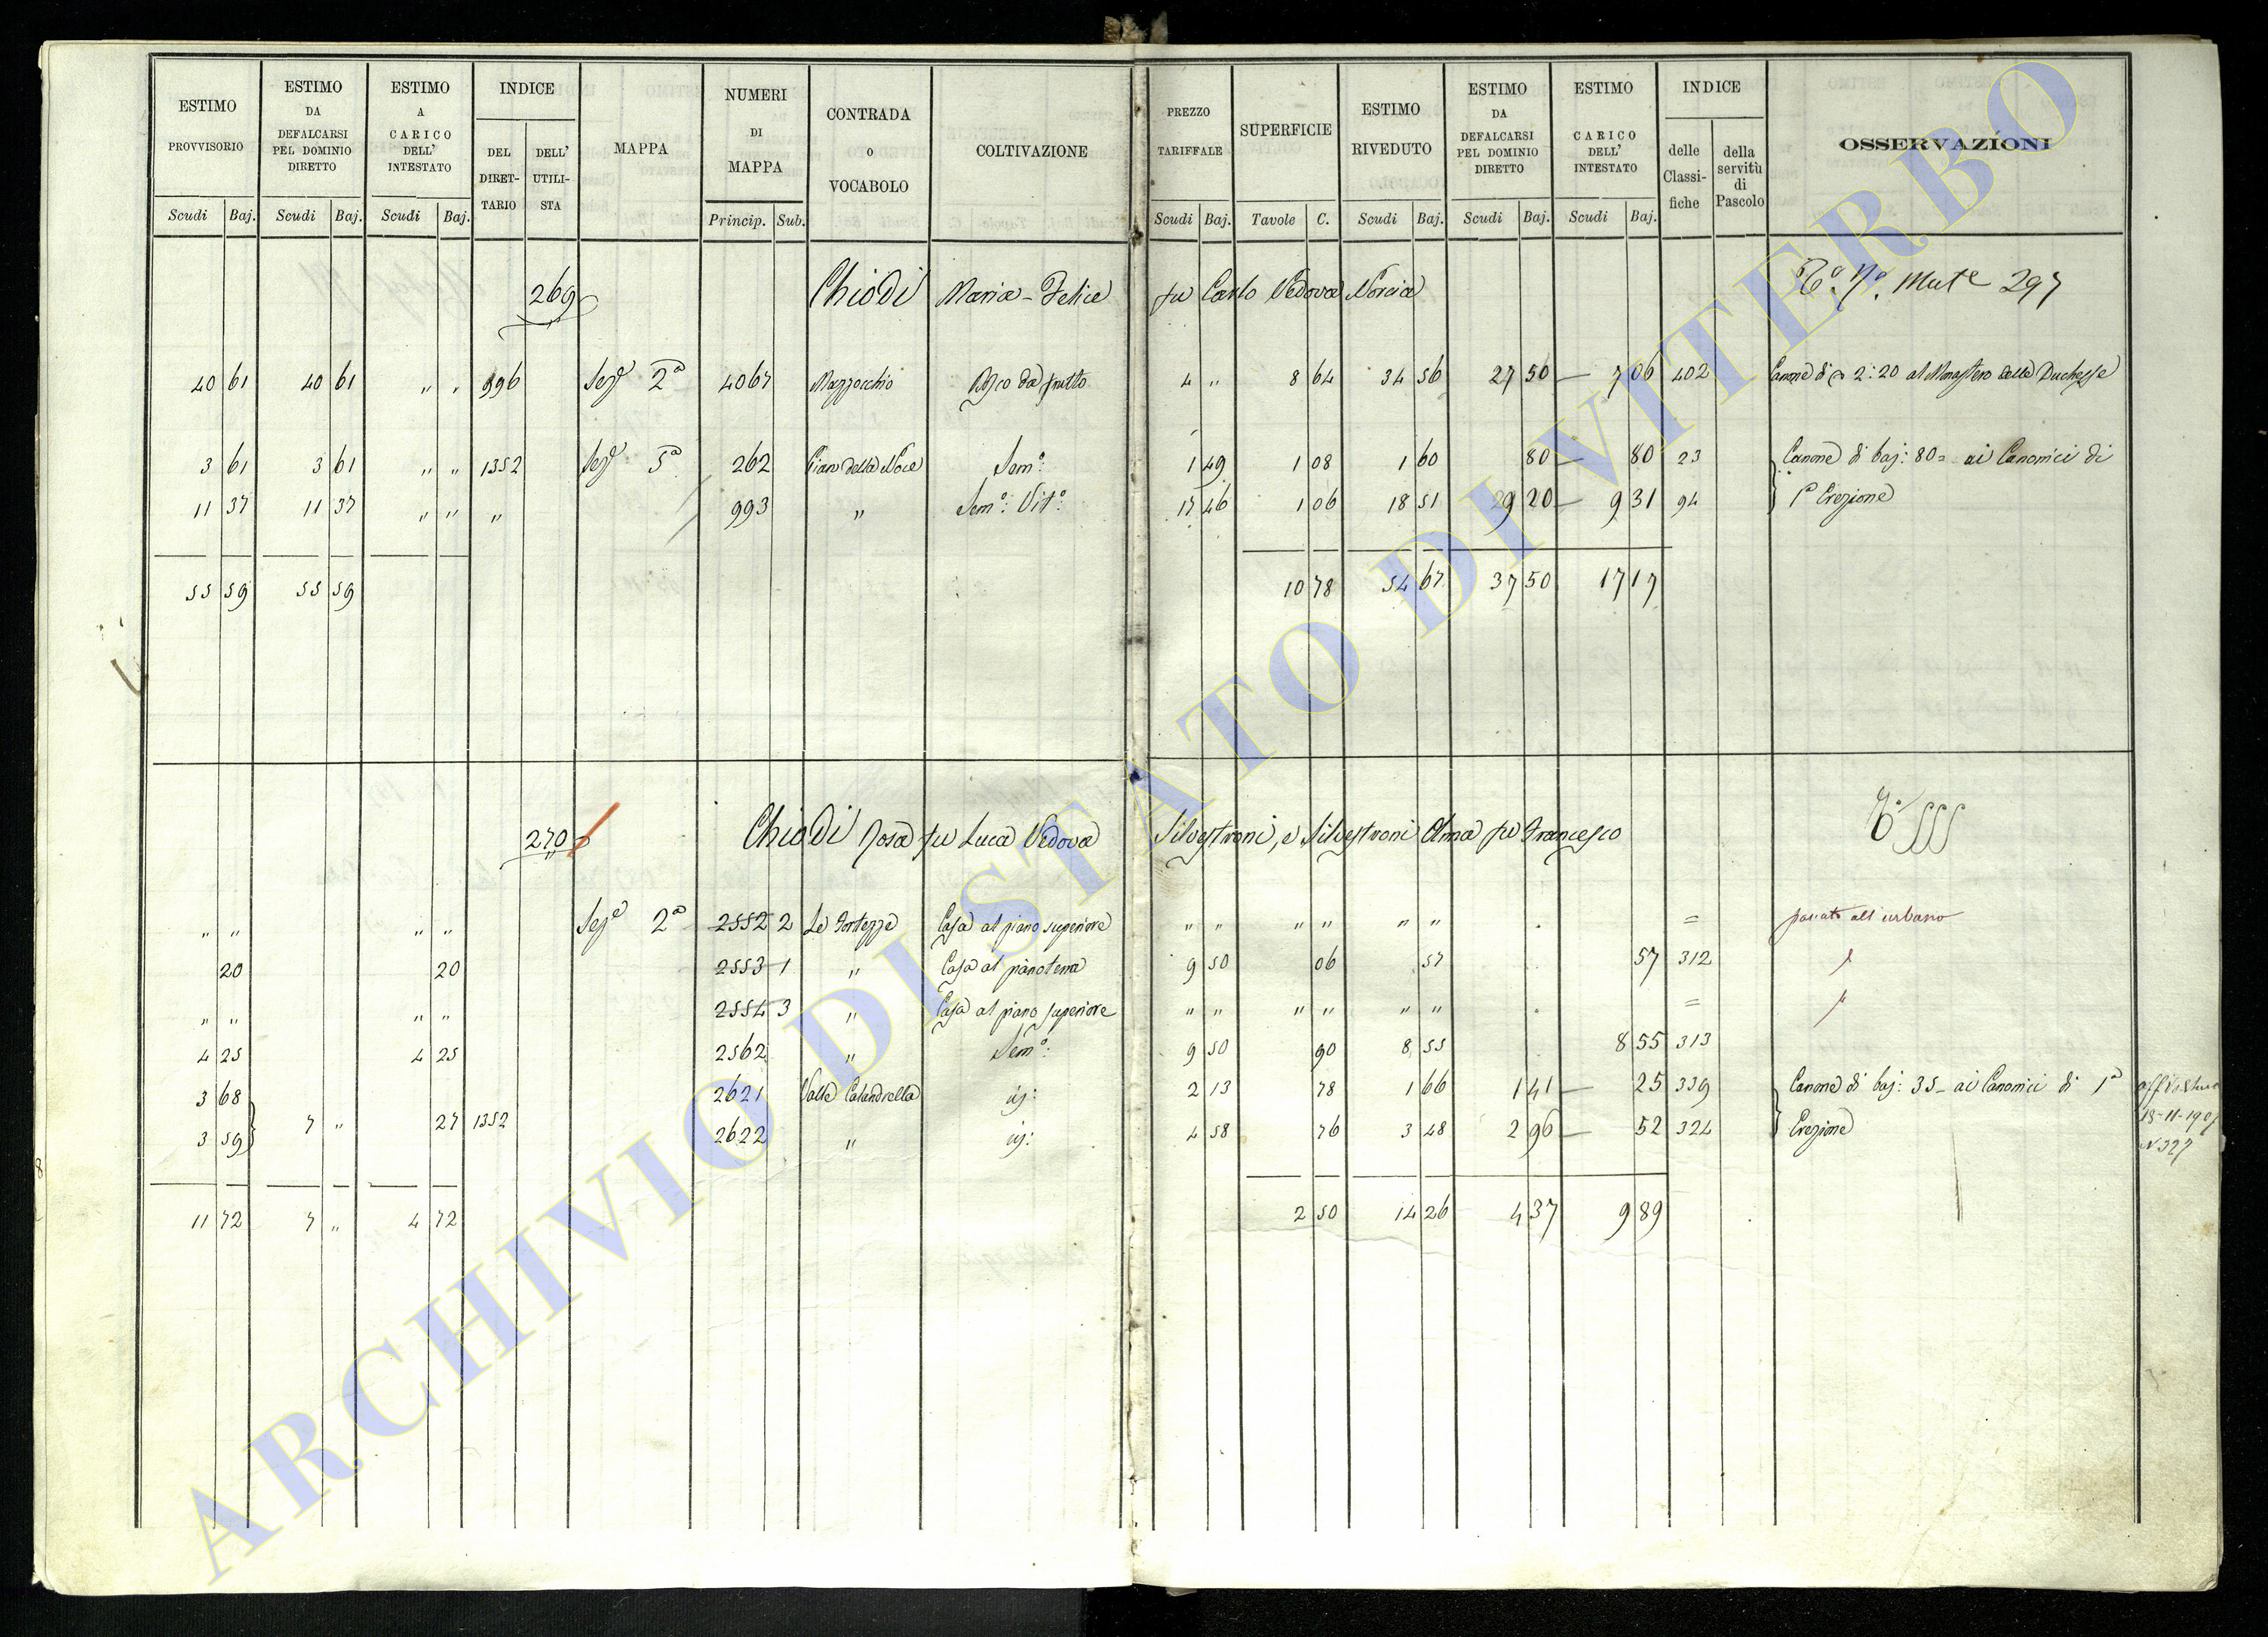 ESTIMO PROVVISORIO
ESTIMO DA DEFALCARSI PEL DOMINIO DIRETTO
ESTIMO A CARICO DELL' INTESTATO
INDICE
DEL DIRETTARIO
DELL' UTILISTA
MAPPA
NUMERI DI MAPPA
CONTRADA O VOCABOLO
COLTIVAZIONE
PREZZO TARIFFALE
SUPERFICIE
ESTIMO RIVEDUTO
ESTIMO DA DEFALCARSI PEL DOMINIO DIRETTO
ESTIMO CARICO DELL' INTESTATO
INDICE
delle Classifiche
della servitù di Pascolo
OSSERVAZIONI
Scudi Baj. Scudi Baj. Scudi Baj. Princip. Sub. Scudi Baj. Tavole C. Scudi Baj. Scudi Baj. Scudi Baj.
269 Chiodi Maria-Felice fu Carlo Vedova Norcia 297
40 61 40 61 " " 996 Sezе 2a 4067 Mazzocchio da frutto 4 " 8 64 34 56 27 50 — 7 06 402 Canone di 2:20 al Monastero della Duchesse
3 61 3 61 " " 1352 Seze 5a 262 Piano della Noce Semo: 1 49 1 08 1 60 80 — 80 23 Canone di baj: 80 = ai Canonici di
11 37 11 37 " " " 993 " Semo: Vito: 17 46 1 06 18 51 29 20 — 9 31 94 1a Erezione
55 59 55 59 10 78 54 67 37 50 17 17
270 Chiodi Rosa fu Luca Vedova Silvestroni, e Silvestroni Anna fu Francesco
" " " " Seze 2a 2552 2 Le Fortezze Casa al piano superiore " " " " " " = passato all'urbano
20 20 2553 1 " Casa al pianoterra 9 50 06 57 57 312
" " " " 2554 3 " Casa al piano superiore " " " " " " =
4 25 4 25 2562 " Semo: 9 50 90 8 55 8 55 313
3 68 2621 Valle Calandrella id: 2 13 78 1 66 1 41 — 25 339 Canone di baj: 35 = ai Canonici di 1a
3 59 7 " 27 1352 2622 " id: 4 58 76 3 48 2 96 — 52 324 Erezione
18-11-190
N 327
11 72 7 " 4 72 2 50 14 26 4 37 9 89
8
ARCHIVIO DI STATO DI VITERBO